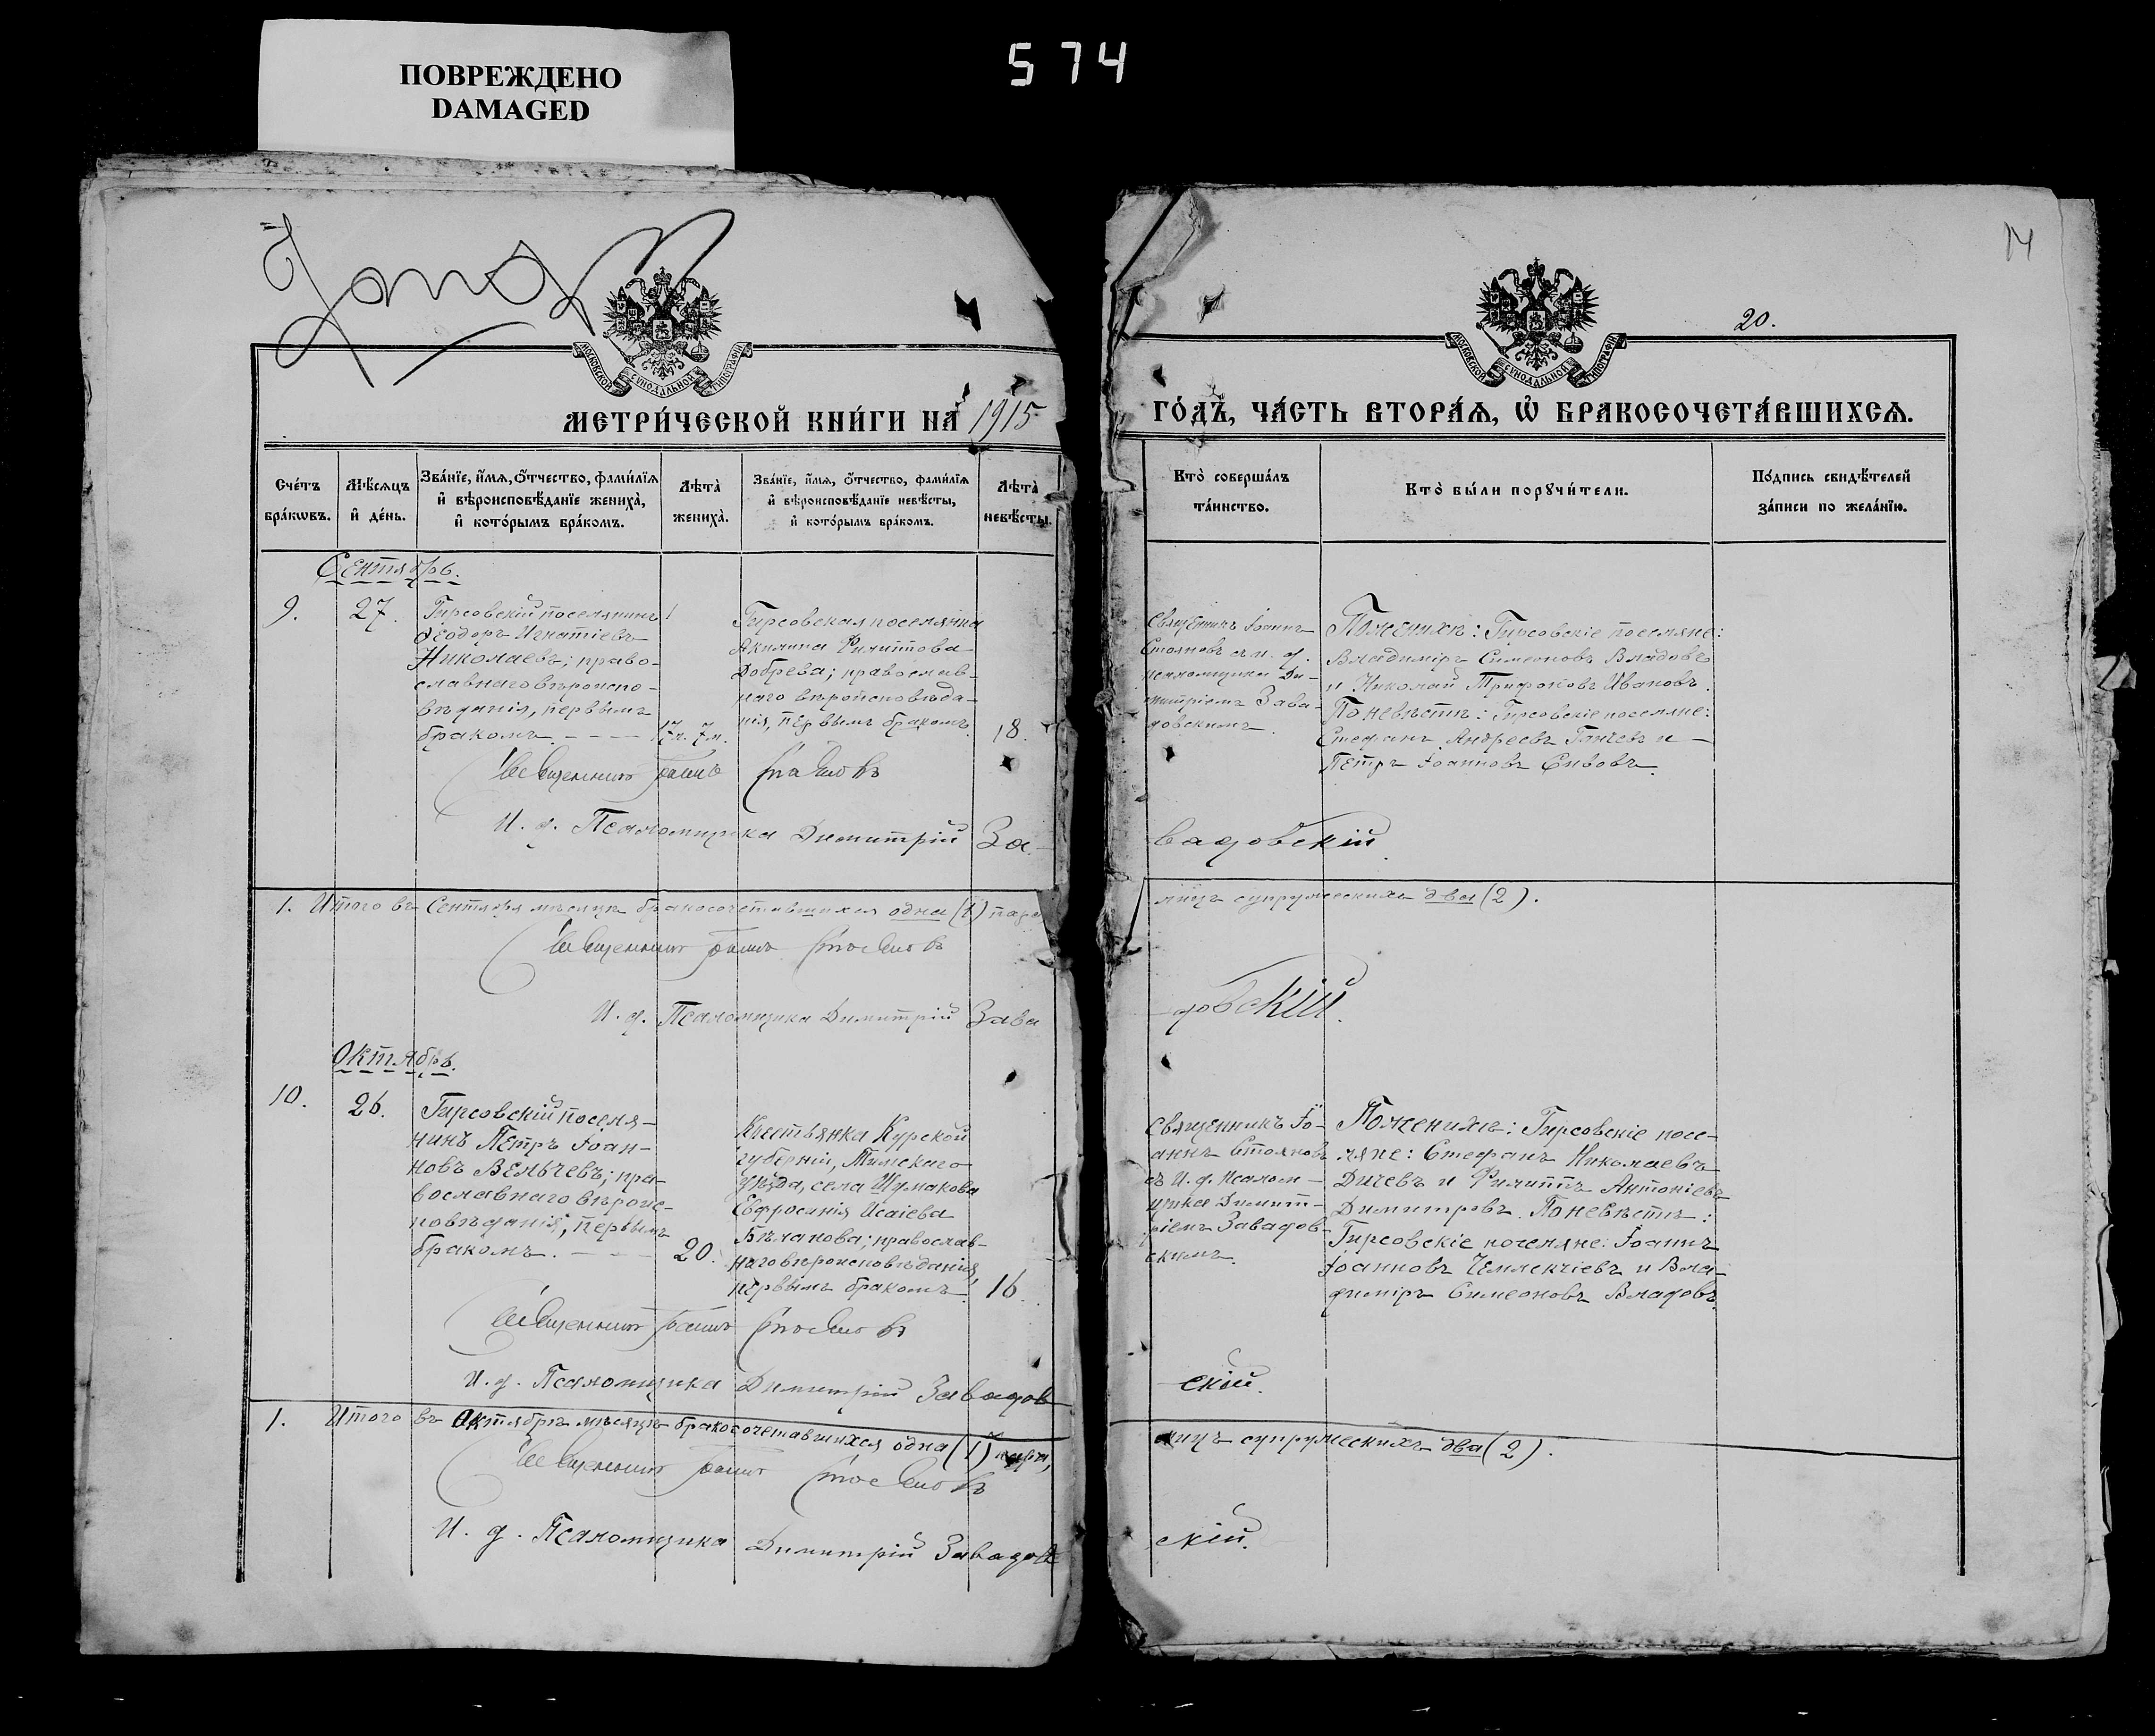 ПОВРЕЖДЕНО
DAMAGED
574
14
20.
МОСКОВСКОЙ СѴНОДАЛЬНОЙ ТИПОГРАФІИ
МОСКОВСКОЙ СѴНОДАЛЬНОЙ ТИПОГРАФІИ
МЕТРИ́ЧЕСКОЙ КНИ́ГИ НА 1915
ГО́ДЪ, ЧА́СТЬ ВТОРА́Я, Ѡ БРАКОСОЧЕТА́ВШИХСЯ.
Сче́тъ
бра́кѡвъ.
Мѣсяцъ
и҆ де́нь.
Зва́нїе, и҆́мя, ѻ҆́тчество, фами́лїя
и҆ вѣроисповѣ́данїе жениха̀,
и҆ кото́рымъ бра́комъ.
Лѣта̀
жениха̀.
Зва́нїе, и҆́мя, ѻ҆́тчество, фами́лїя
и҆ вѣроисповѣ́данїе невѣ́сты,
и҆ кото́рымъ бра́комъ.
Лѣта̀
невѣ́сты.
Кто̀ соверша́лъ
та́инство.
Кто̀ бы́ли порꙋчи́тели.
По́дпись свидѣ́телей
за́писи по жела́нїю.
Сентябрь.
9.
27.
Гирсовскій поселянинъ
Ѳеодоръ Игнатіевъ
Николаевъ; право-
славнаго вѣроиспо-
вѣданія, первымъ
бракомъ. - - - -
17л. 7м.
Гирсовская поселянка
Акилина Филиппова
Добрева; православ-
наго вѣроисповѣда-
нія, первымъ бракомъ.
18.
Священникъ Іоаннъ
Стояновъ съ и. д.
псаломщика Ди-
митріемъ Зава-
довскимъ.
По женихѣ: Гирсовскіе поселяне:
Владиміръ Симеоновъ Владовъ
и Николай Трифоновъ Ивановъ.
По невѣстѣ: Гирсовскіе поселяне:
Стефанъ Андреевъ Ганчевъ и —
Петръ Іоанновъ Сивовъ.
Священникъ Іоаннъ Стояновъ
И. д. Псаломщика Димитрій За-
вадовскій.
1. Итого въ Сентябрѣ мѣсяцѣ бракосочетавшихся одна (1) пара
лицъ супружескихъ два (2).
Священникъ Іоаннъ Стояновъ
И. д. Псаломщика Димитрій Зава
довскій.
Октябрь.
10.
26.
Гирсовскій поселя-
нинъ Петръ Іоан-
новъ Вельчевъ; пра-
вославнаго вѣроис-
повѣданія, первымъ
бракомъ. - - -
20.
Кестьянка Курской
губерніи, Тимскаго
уѣзда, села Шумакова
Евфросинія Исаіева
Бѣланова; православ-
наго вѣроисповѣданія,
первымъ бракомъ.
16.
Священникъ Іо-
аннъ Стояновъ
съ И. д. Псалом-
щика Димит-
ріемъ Завадов-
скимъ.
По женихѣ: Гирсовскіе посе-
ляне: Стефанъ Николаевъ
Дичевъ и Филиппъ Антоніевъ
Димитровъ. По невѣстѣ:
Гирсовскіе поселяне: Іоаннъ
Іоанновъ Чемлекчіевъ и Вла-
диміръ Симеоновъ Владовъ.
Священникъ Іоаннъ Стояновъ
И. д. Псаломщика Димитрій Завадов
скій.
1. Итого въ Октябрѣ мѣсяцѣ бракосочетавшихся одна (1) пара,
лицъ супружескихъ два (2).
Священникъ Іоаннъ Стояновъ
И. д. Псаломщика Димитрій Завадов
скій.